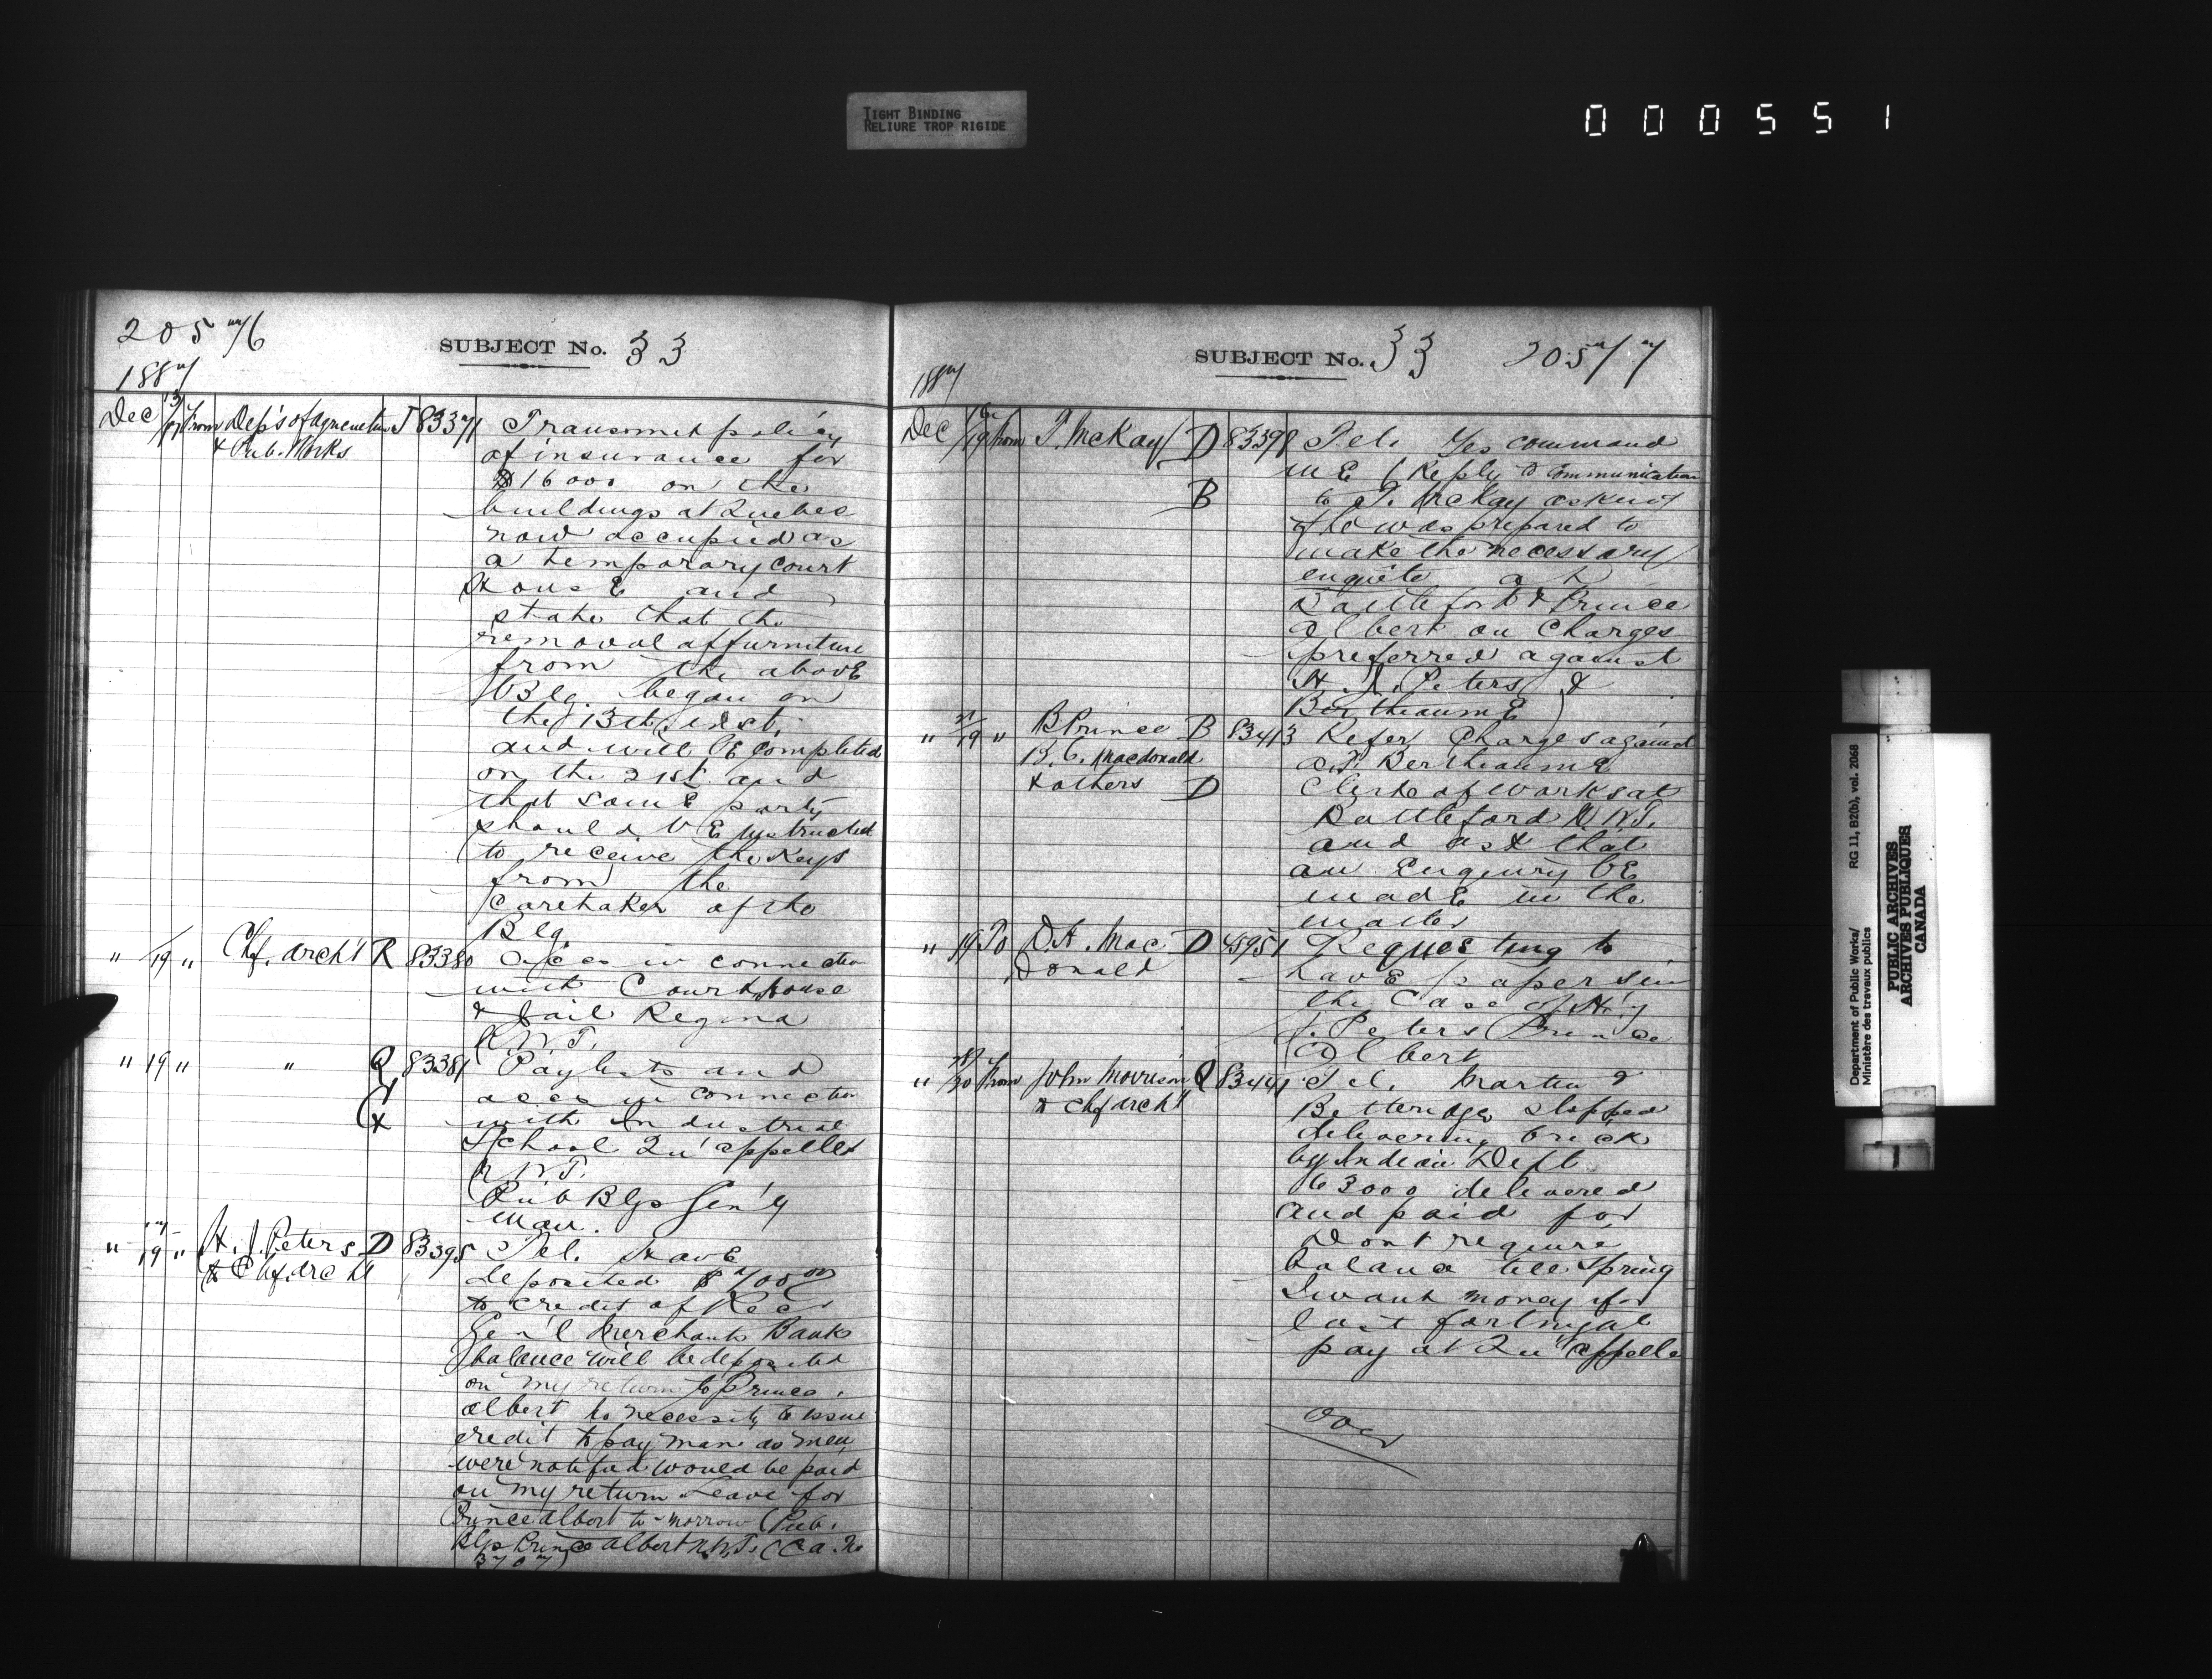 TIGHT BINDING
RELIURE TROP RIGIDE
000551
20576
SUBJECT No. 33
1887
Dec 13/17 From Dep's of Agriculture J 83371 Transmit policy
& Pub. Works of insurance for
$16000 on the
buildings at Quebec
now occupied as
a temporary court
House and
state that the
removal of furniture
from the above
Blg. began on
the 13th inst.
and will be completed
on the 21st and
that some party
should be instructed
to receive the keys
from the
caretaker of the
Blg
" /19 " Chf. Arch't R 83380 a/cs in connection
with Court house
& Jail Regina
N.W.T.
" 19 " " Q 83381 Paylists and
& accs in connection
with Industrial
School Qu'appelle
N.W.T.
Pub Blgs Gen'y
Man.
" 17/19 " H. J. Peters D 83395 Tel. Have
& Chf. Arch't deposited $700
to credit of Rec
Gen'l Merchants Bank
balance will be deposited
on my return to Prince
Albert no necessity to issue
credit to pay man as men
were notified would be paid
on my return Leave for
Prince Albert to-morrow (Pub.
Blgs Prince Albert N.W.T. (C.A. No
3707)
SUBJECT No. 33 20577
1887
Dec 16/19 From T. McKay D 83398 Tel. Yes command
me (Reply to communication
B to T. McKay asking
if he was prepared to
make the necessary
enquête at
Battleford & Prince
Albert on Charges
preferred against
H. J. Peters &
Bertheaume)
" /19 " B Prince B 83413 Refer Charges against
B. C. Macdonald
& others D
A.T. Bertheaume
Clerk of works at
Battleford N.W.T.
and ask that
an Enquiry be
made in the
matter
" 19 To D. H. Mac D 45951 Requesting to
Donald have papers in
the Case of H'y
J. Peters Prince
Albert
" /20 From John Morrison Q 83441 Tel. Martin &
& Chf Arch't Betteridge stopped
delivering brick
by Indian Dept
63000 delivered
and paid for
Dont require
balance till Spring
I want money for
last fortnight
pay at Qu'appelle
Department of Public Works/
Ministère des travaux publics
RG 11, B2(b), vol. 2068
PUBLIC ARCHIVES
ARCHIVES PUBLIQUES
CANADA